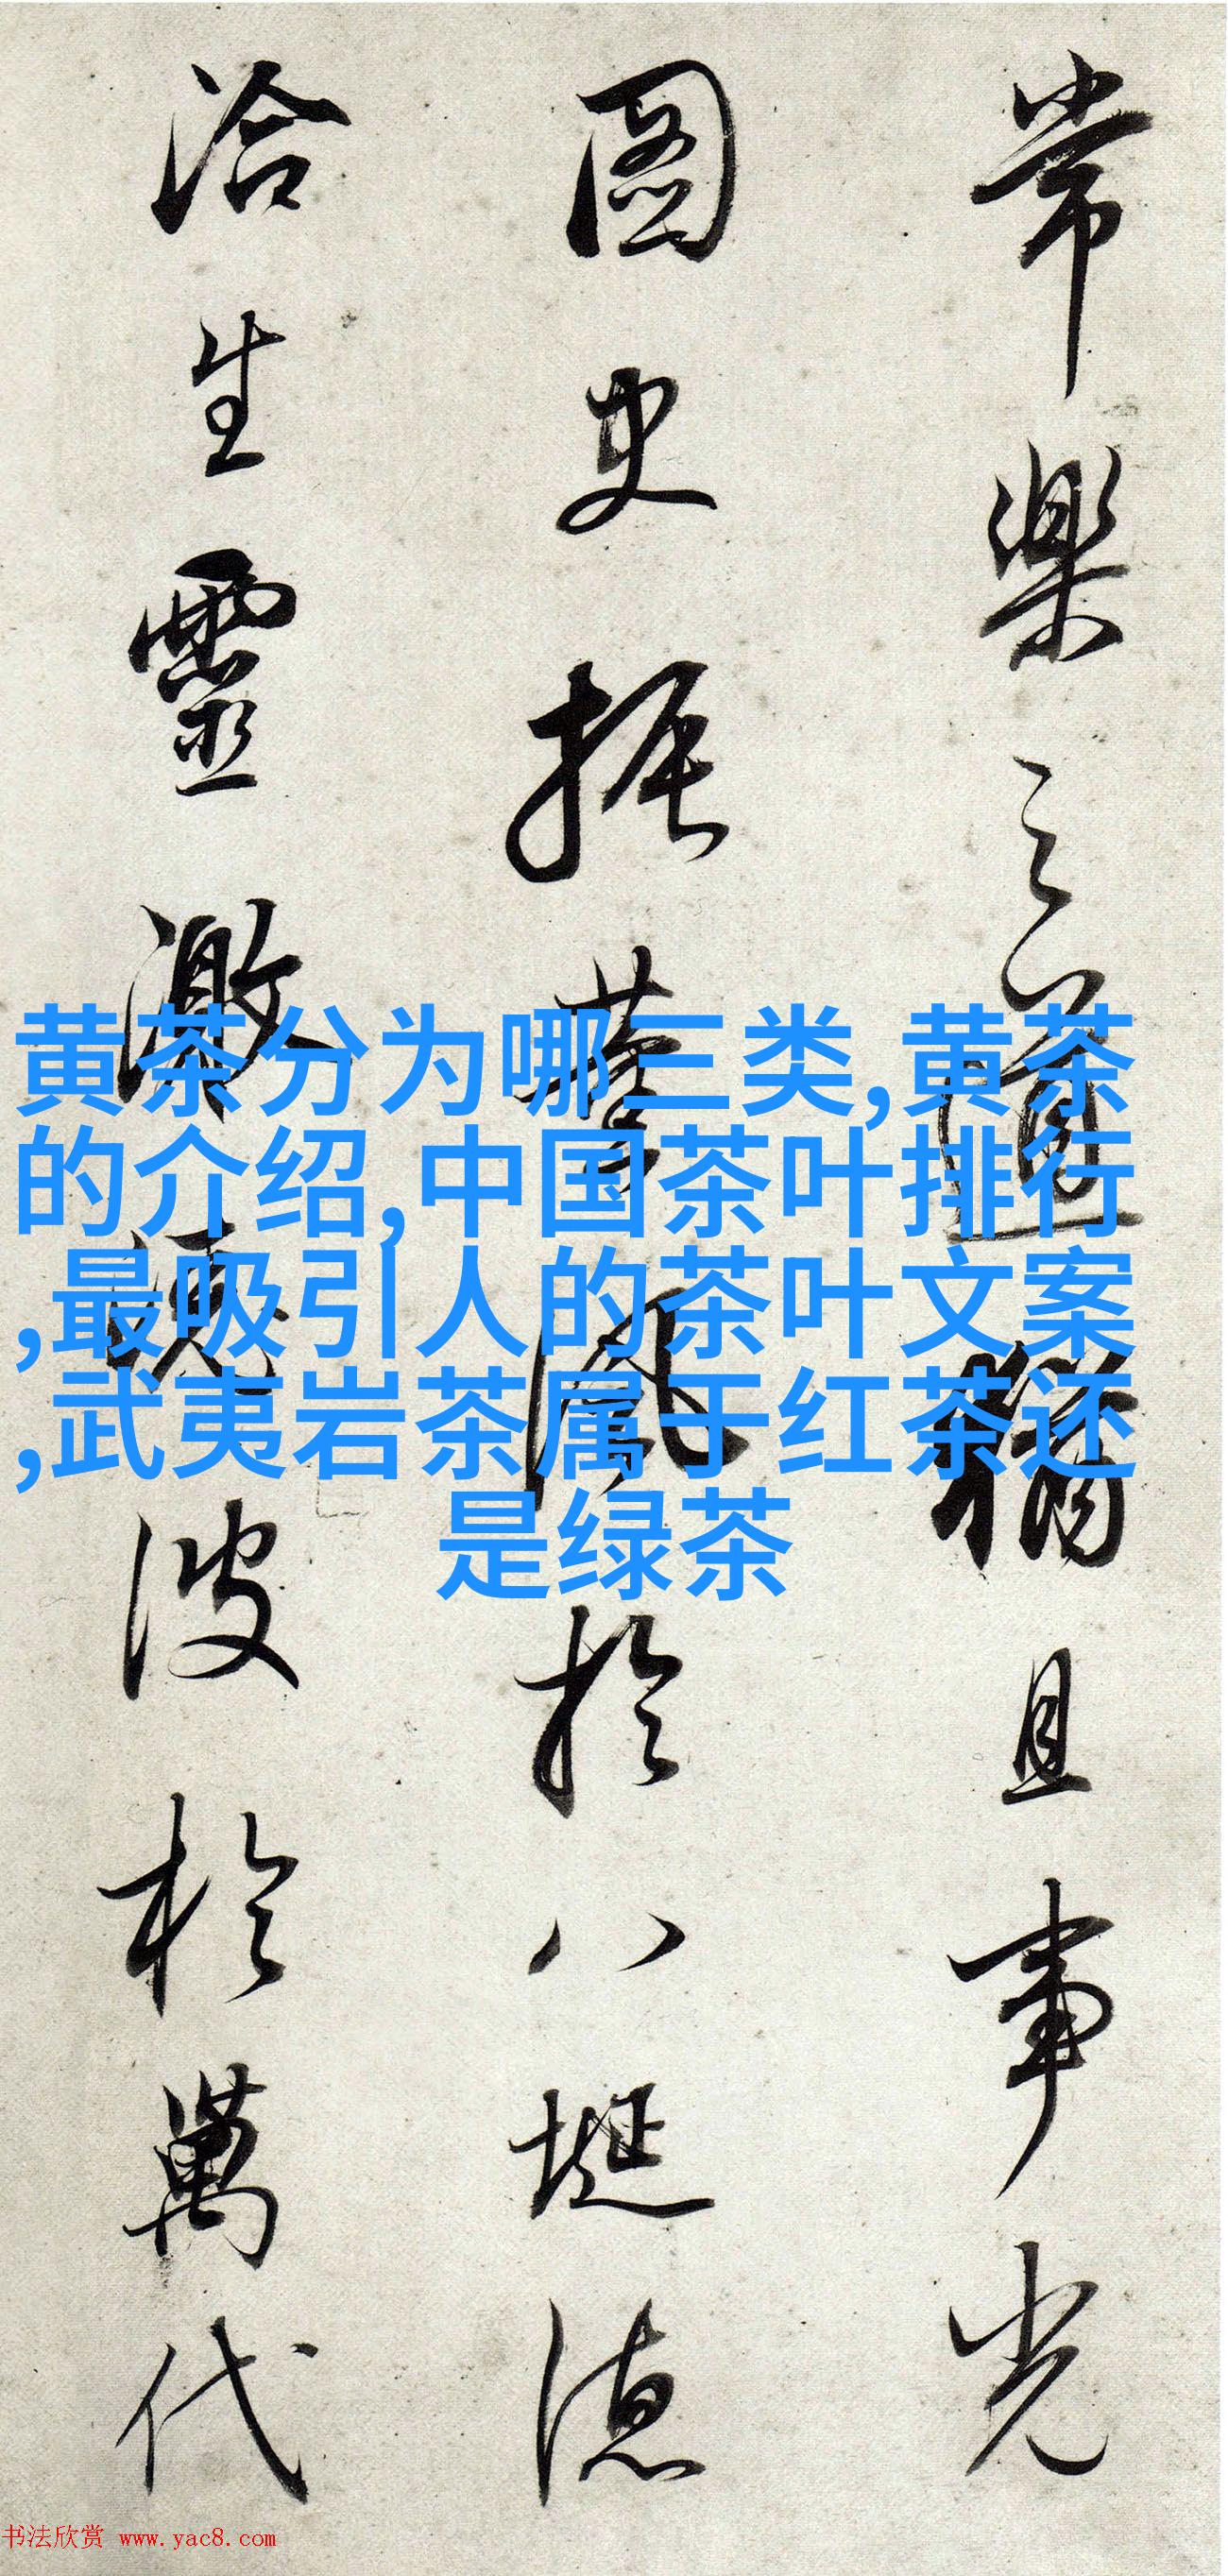 常樂之道猶且事光
圖史振英風於八埏德
洽生靈激頽波於萬代
黄茶分为哪三类,黄茶
的介绍,中国茶叶排行
,最吸引人的茶叶文案
,武夷岩茶属于红茶还
是绿茶
书法欣赏 www.yac8.com